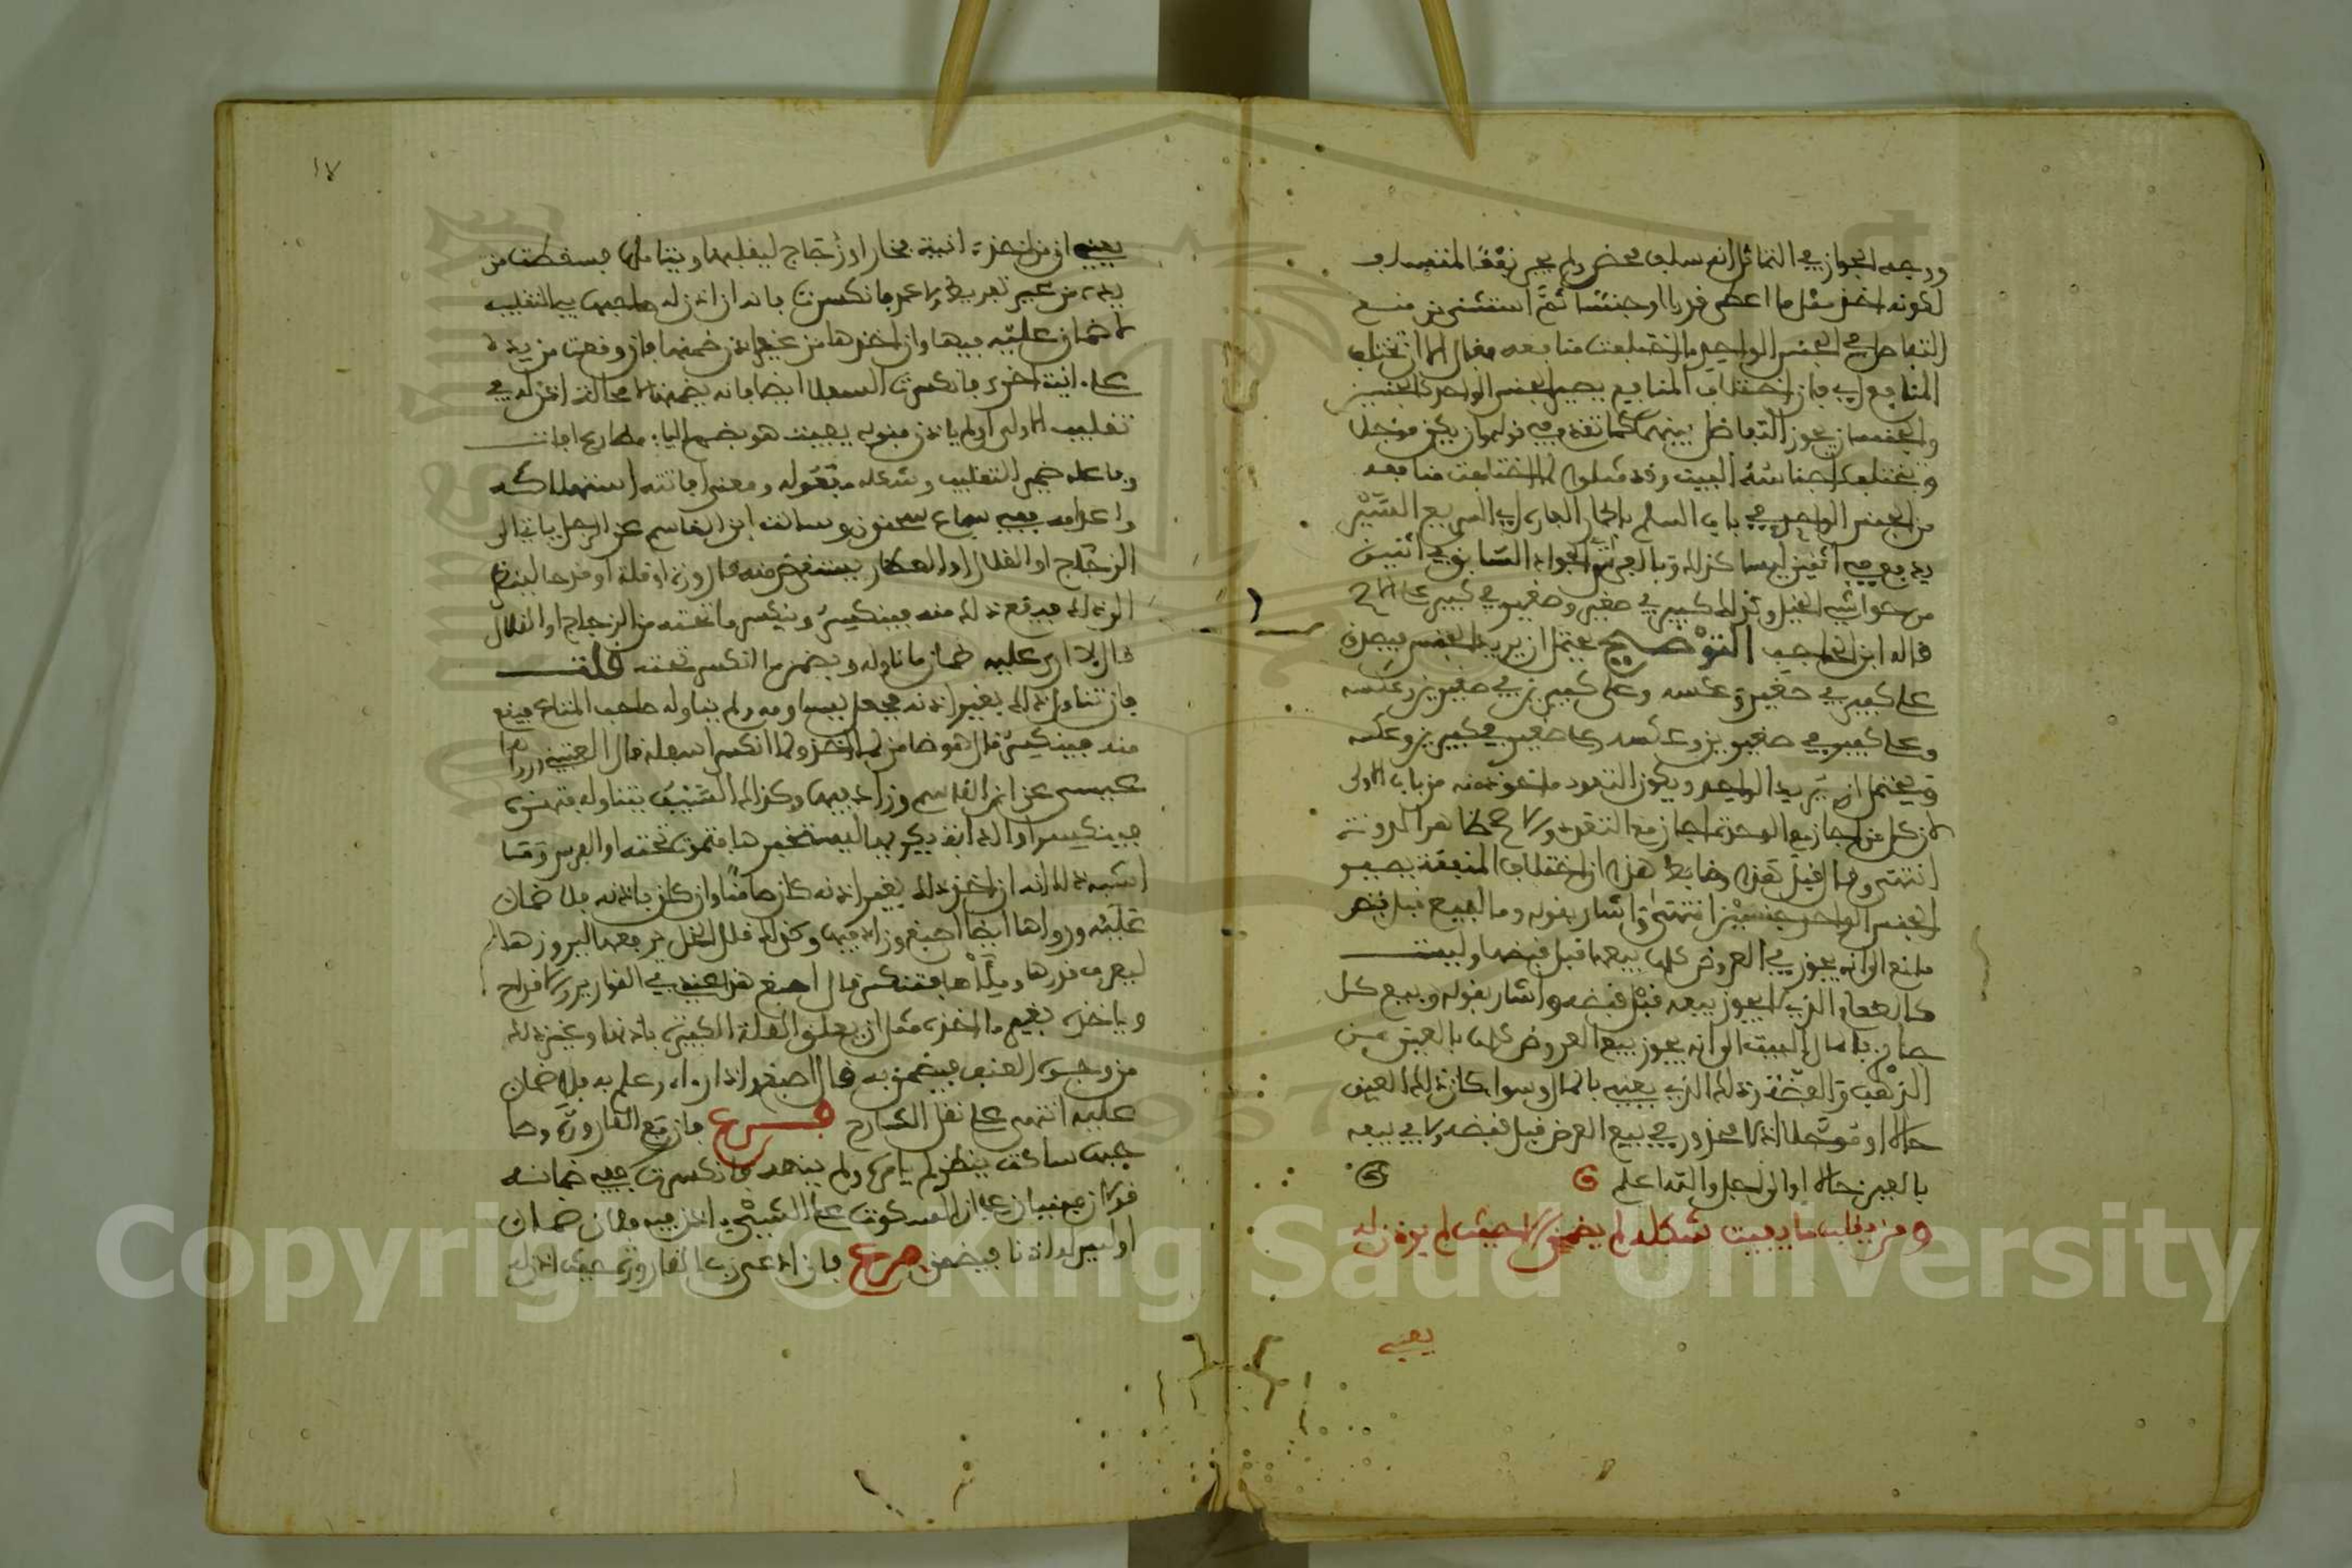 ووجه الجواز في التماثل انه سلف محض ولم يجر نفعا للمتسلف
لكونه اخذ مثل ما اعطى قدرا وجنسا ثم استثنى من منع
التفاضل في الجنس الواحد ما اختلفت منافعه فقال الا ان تختلف
المنافع اي فان اختلاف المنافع يصير الجنس الواحد كالجنسين
والجنسان يجوز التفاضل بينهما كما تقدم في قوله وان يكن مؤجلا
وتختلف اجناسه البيت وقد مثلوا لما اختلفت منافعه
من الجنس الواحد في باب السلم بالحمار الفاره اي السريع السير
يدفع في اثنين ليسا كذلك وبالفرس الجواد السابق في اثنين
من حواشي الخيل وكذلك كبير في صغير وصغير في كبير على الاصح
قاله ابن الحاجب التوضيح يحتمل ان يريد الجنس فيصدق
على كبير في صغير وعكسه وعلى كبيرين في صغيرين وعكسه
وعلى كبير في صغيرين وعكسه وعلى صغير في كبيرين وعكسه
ويحتمل ان يريد الواحد ويكون التعدد ماخوذ منه من باب الاولى
لان كل من اجاز مع الوحدة اجاز مع التعدد والاصح ظاهر المدونة
انتهى وما قبل هذا وضابط هذا ان اختلاف المنفعة يصير
الجنس الواحد جنسين انتهى واشار بقوله وما لبيع قبل قبض
مانع الى انه يجوز في العروض كلها بيعها قبل قبضها وليست
كالطعام الذي لا يجوز بيعه قبل قبضه واشار بقوله وبيع كل
جائز بالمال البيت الى انه يجوز بيع العروض كلها بالعين من
الذهب والفضة وذلك الذي يعنيه بالمال وسواء كان ذلك العين
حالا او مؤجلا اذ لا محذور في بيع العرض قبل قبضه ولا في بيعه
بالعين حالا او الى اجل والله اعلم
ومن يقلب ما يفيت شكله لم يضمن الا حيث لم يؤذن له
يعني
١٧
يعني ان من اخذ انية فخار او زجاج ليقلبها ويتاملها فسقطت من
يده من غير تفريط ولا عمد فانكسرت فانه ان اذن له صاحبها في التقليب
لا ضمان عليه فيها وان اخذها من غير اذن ضمنها فان وقعت من يده
على انية اخرى فانكسرت السفلى ايضا فانه يضمنها لا محالة اذن له في
تقليب الاولى او لم ياذن فقوله يفيت هو بضم الياء مضارع افات
وفاعله ضمير التقليب وشكله مفعوله ومعنى افاتته استهلاكه
واعدامه ففي سماع سحنون وسالت ابن القاسم عن الرجل ياتي الى
الزجاج او القلال او العطار يستعرض منه قارورة او قلة او قدحا لينظر
الى ذلك فيدفع ذلك منه فينكسر وينكسر ما تحته من الزجاج او القلال
قال لا ارى عليه ضمان ما ناوله ويضمن ما انكسر تحته قلت
فان تناول ذلك بغير اذنه فجعل يساومه ولم يناوله صاحب المتاع فيقع
منه فينكسر قال هو ضامن لما اخذ ولما انكسر اسفله قال العتبي ورواها
عيسى عن ابن القاسم وزاد فيها وكذلك السيف يتناوله فيهزه
فينكسر او الدابة يركبها ليستخبرها فتموت تحته او القوس وما
اشبه ذلك انه ان اخذ ذلك بغير اذنه كان ضامنا وان كان باذنه فلا ضمان
عليه ورواها ايضا اصبغ وزاد فيها وكذلك قلال الخل يرفعها ليروزها
ليعرف قدرها وميلها فتنكسر قال اصبغ هذا عندي في القوارير والاقداح
وياخذه بغير ماخذه مثل ان يعلق القلة الكبيرة باذنها ونحو ذلك
من وجوه العنف فيضمن به قال اصبغ اذا رءاه وعلم به فلا ضمان
عليه انتهى على نقل الشارح فرع فان رفع القارورة وصا
حبها ساكت ينظر لم يامره ولم ينهه فانكسرت ففي ضمانه
قولان مبنيان على ان السكوت على الشيء اذن فيه فلا ضمان
او ليس له اذنا فيضمن فرع فان